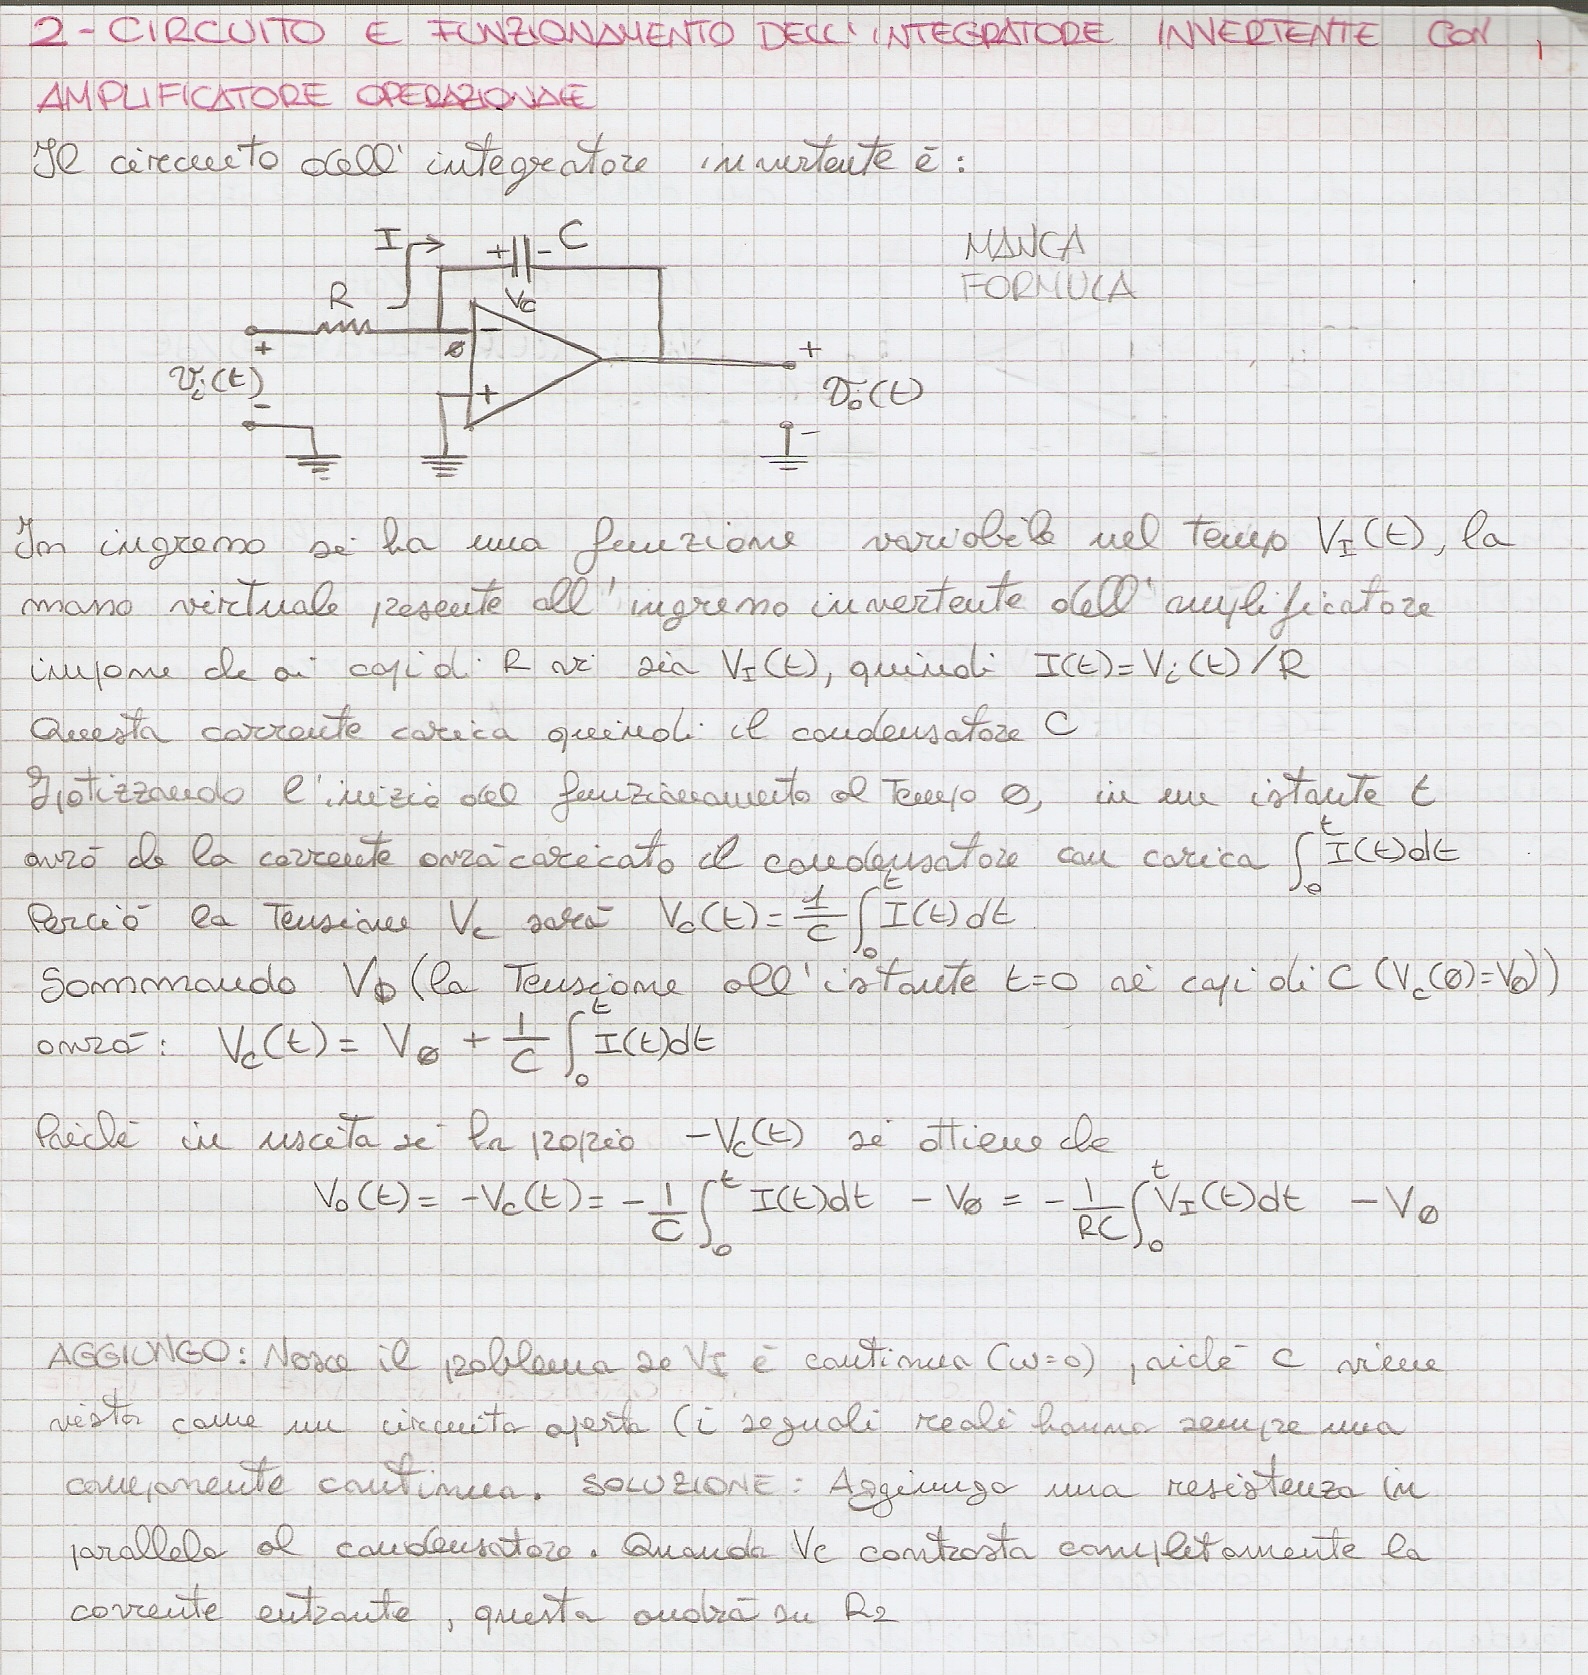 2 - CIRCUITO E FUNZIONAMENTO DELL'INTEGRATORE INVERTENTE CON
AMPLIFICATORE OPERAZIONALE
Il circuito dell'integratore invertente è:
I + - C
MANCA
FORMULA
R Vc
- 0
+ +
Vi(t) + Vo(t)
- -
In ingresso si ha una funzione variabile nel tempo VI(t), la
massa virtuale presente all'ingresso invertente dell'amplificatore
impone che ai capi di R vi sia VI(t), quindi I(t)=Vi(t)/R
Questa corrente carica quindi il condensatore C
Ipotizzando l'inizio del funzionamento al tempo 0, in un istante t
avrò che la corrente avrà caricato il condensatore con carica ∫₀ᵗ I(t)dt
Perciò la tensione Vc sarà Vc(t) = 1/C ∫₀ᵗ I(t)dt
Sommando V0 (la tensione all'istante t=0 ai capi di C (Vc(0)=V0))
avrò: Vc(t) = V0 + 1/C ∫₀ᵗ I(t)dt
Poichè in uscita si ha propio -Vc(t) si ottiene che
Vo(t) = -Vc(t) = - 1/C ∫₀ᵗ I(t)dt - V0 = - 1/RC ∫₀ᵗ VI(t)dt - V0
AGGIUNGO: Nasce il problema se VI è continua (ω=0), poichè C viene
visto come un circuito aperto (i segnali reali hanno sempre una
componente continua. SOLUZIONE: Aggiungo una resistenza in
parallelo al condensatore. Quando Vc contrasta completamente la
corrente entrante, questa andrà su R2